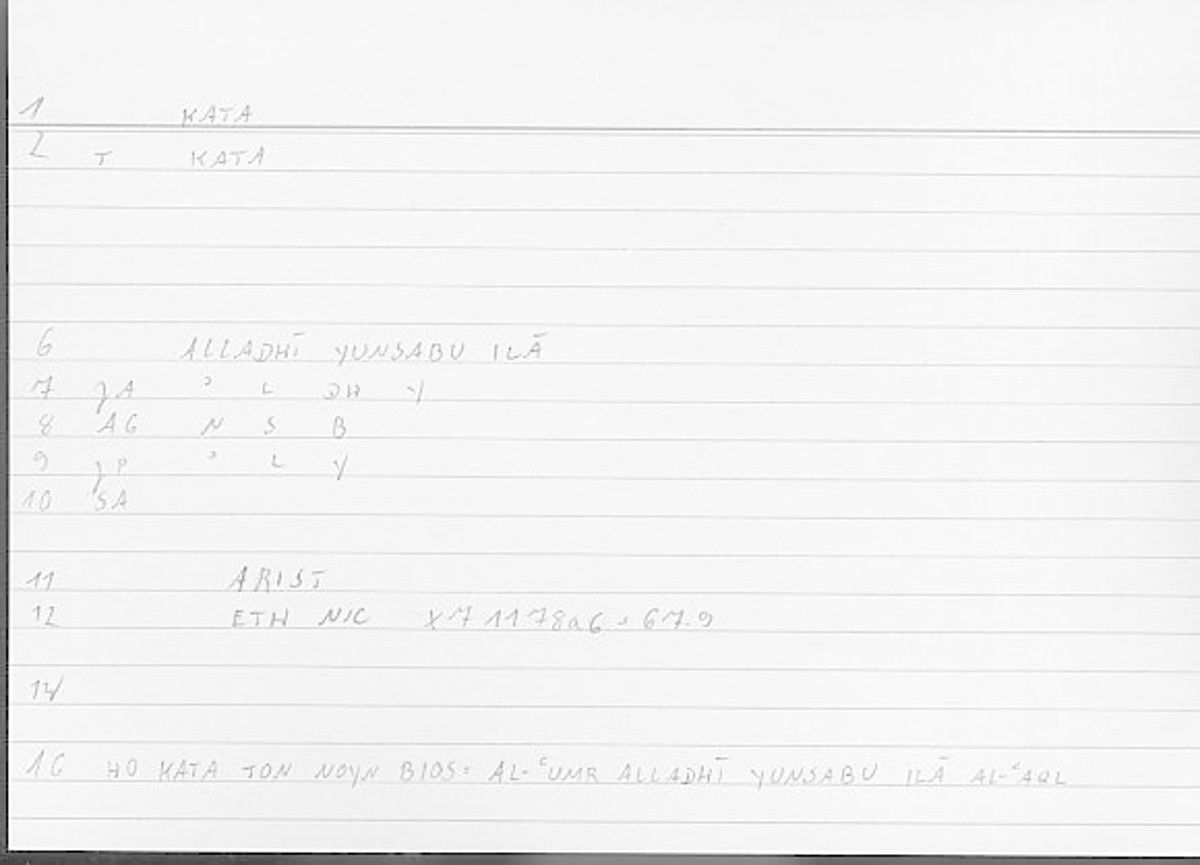 1 KATA
2 T KATA
6 ALLADHĪ YUNSABU ILĀ
7 ʒA ʾ L DH Y
8 AG N S B
9 ʒP ʾ L Y
10 SA
11 ARIST
12 ETH NIC X7 1178a6 = 67.9
14
16 HO KATA TON NOYN BIOS = AL-ʿUMR ALLADHĪ YUNSABU ILĀ AL-ʿAQL